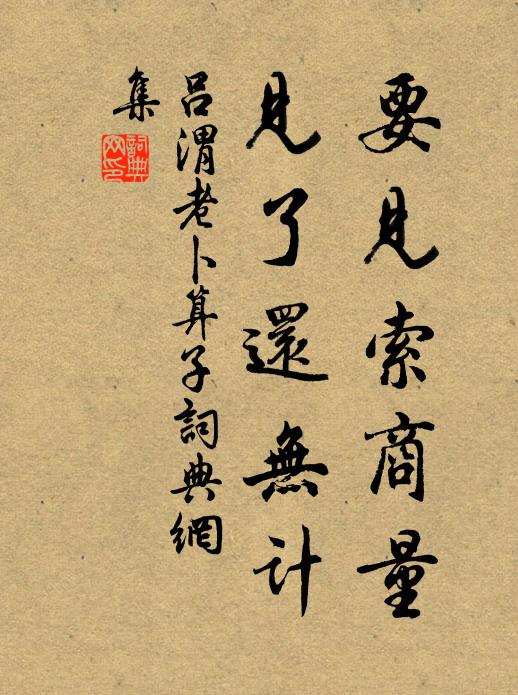 要見索商量
見了還無計
呂渭老卜算子詞典網
集
詞典网印